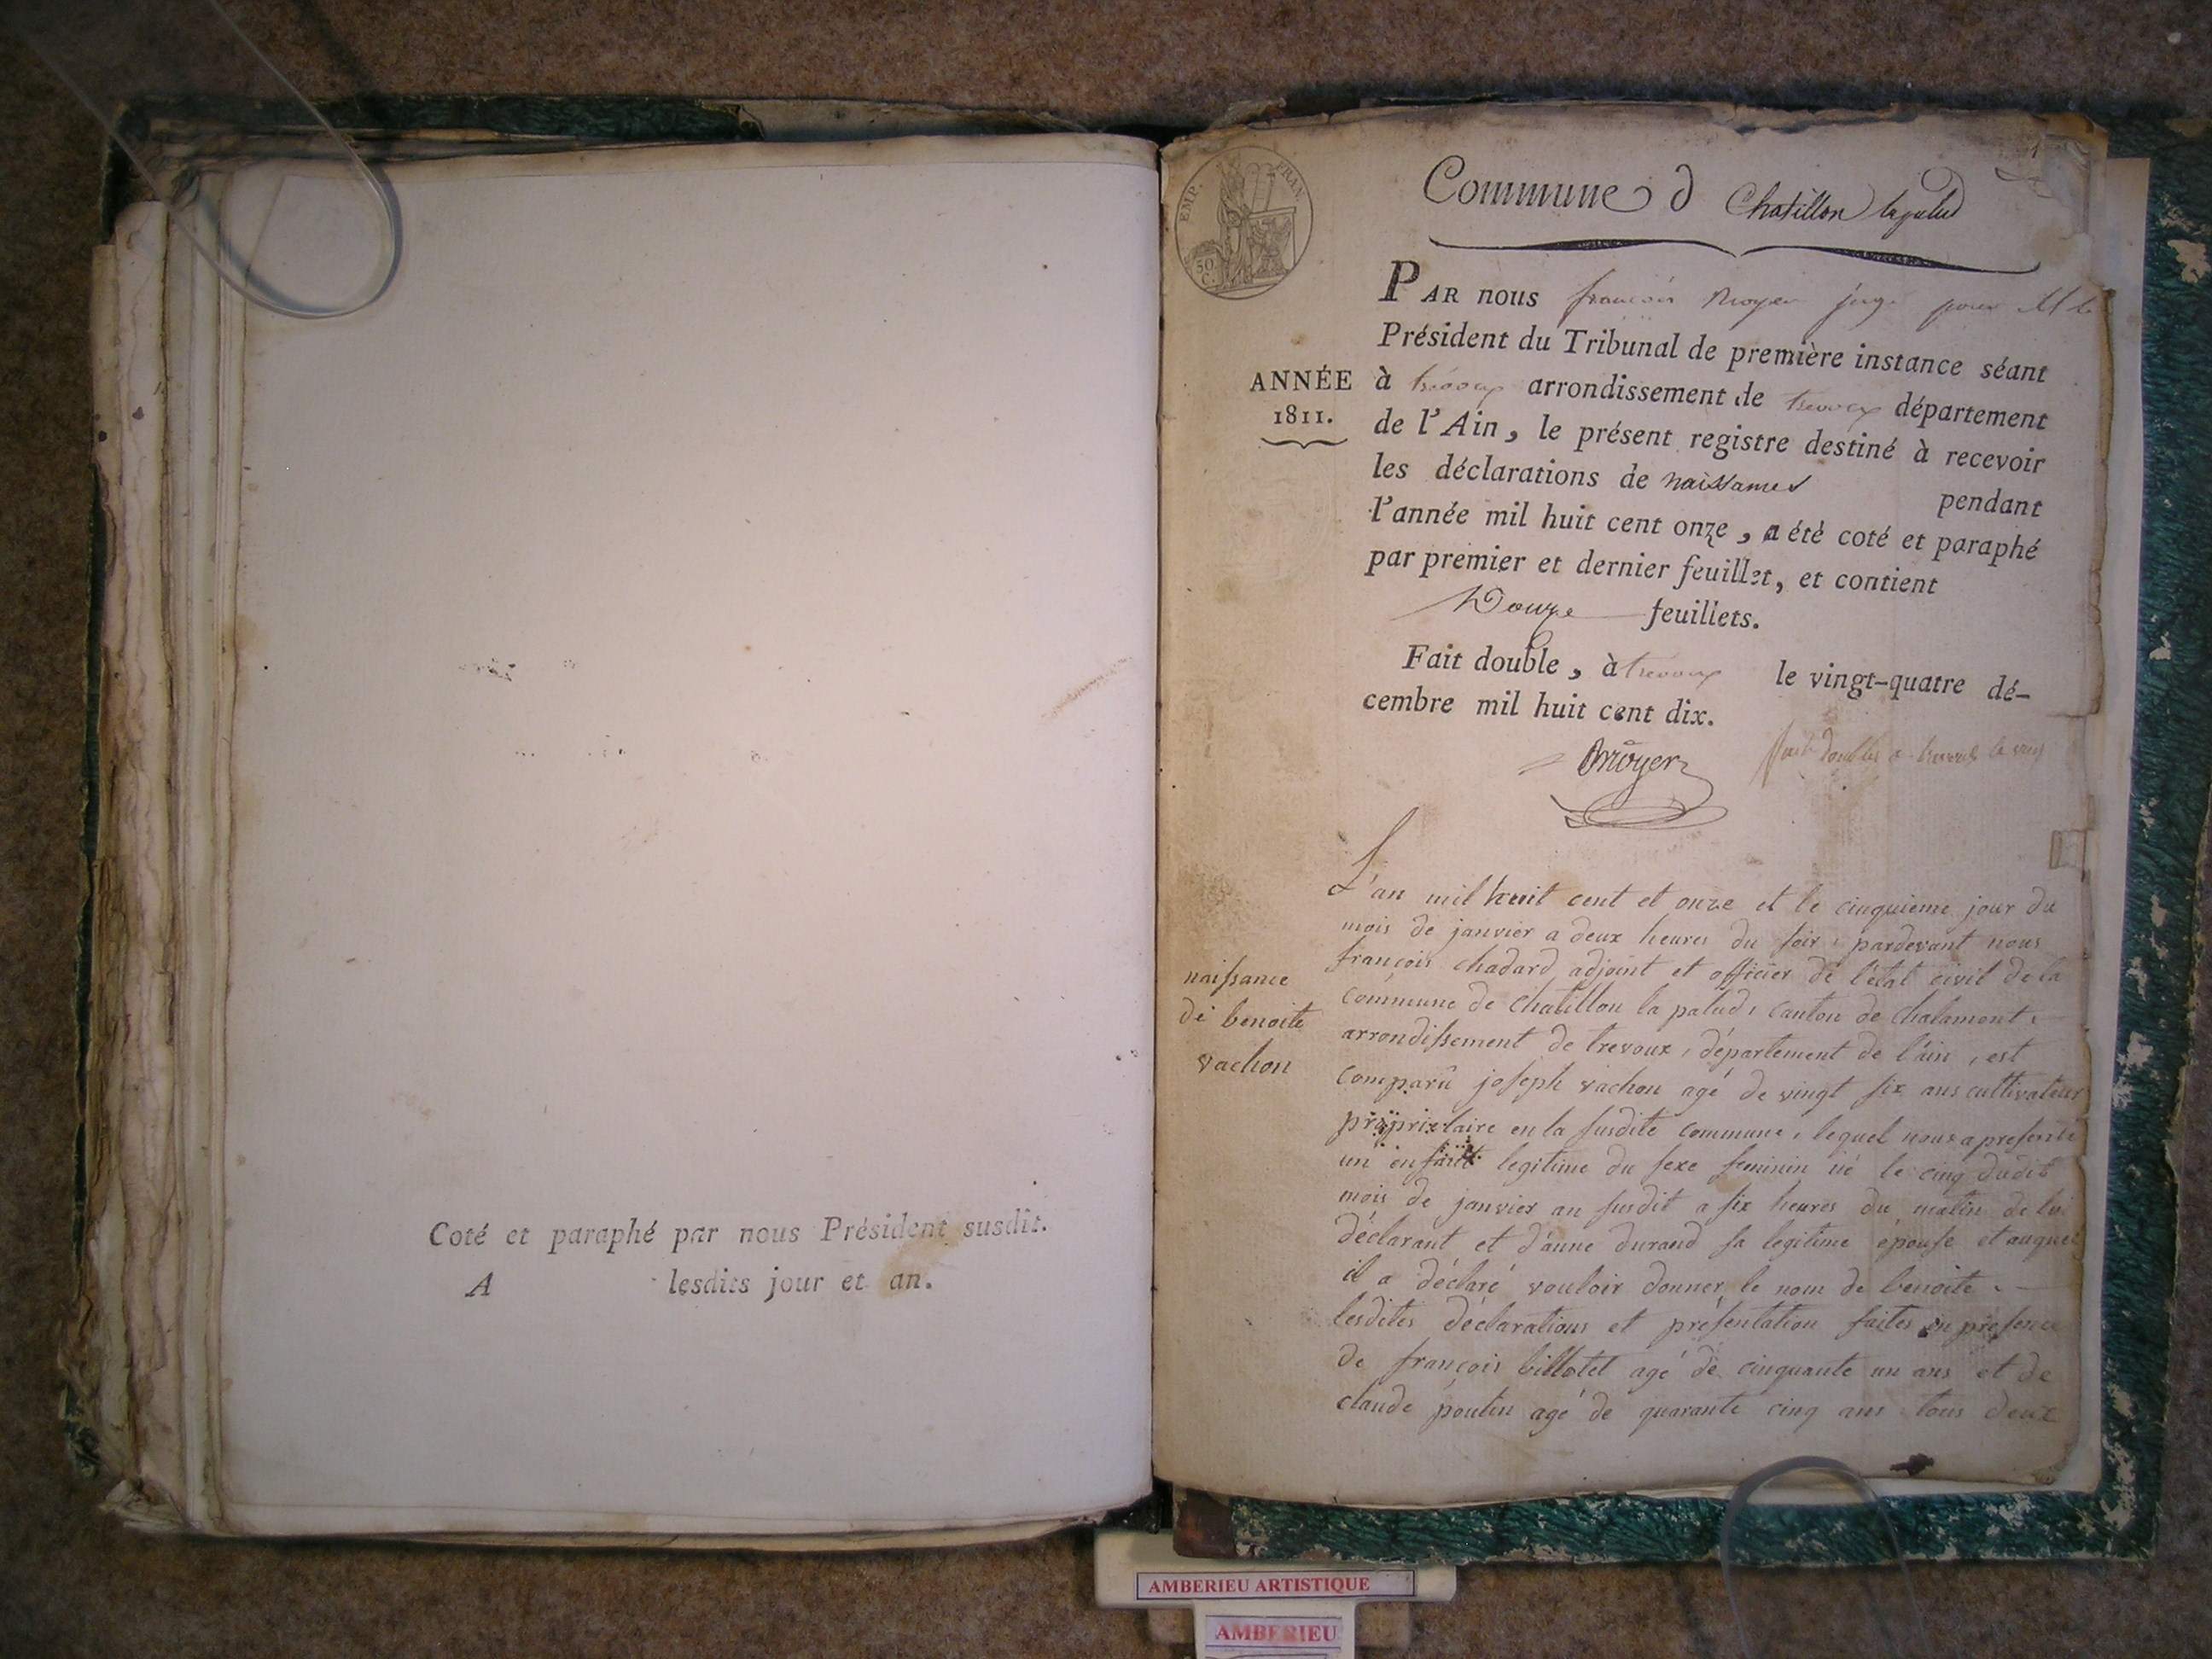 Coté et paraphé par nous Président susdit.
A lesdits jour et an.
EMP. FRAN.
50
C.
1
Commune d Chatillon lapalud
PAR nous françois moyer juge pour M le
Président du Tribunal de première instance séant
ANNÉE
1811.
à trévoux arrondissement de trevoux département
de l'Ain, le présent registre destiné à recevoir
les déclarations de naissances pendant
l'année mil huit cent onze, a été coté et paraphé
par premier et dernier feuillet, et contient
Douze feuillets.
Fait double, à trevoux le vingt-quatre dé-
cembre mil huit cent dix.
fait double a trevoux le
naissance
de benoite
vachon
L'an mil huit cent et onze et le cinquieme jour du
mois de janvier a deux heures du soir, pardevant nous
françois chadard adjoint et officier de l'état civil de la
commune de chatillon la palud, canton de chalamont,
arrondissement de trevoux, département de l'ain, est
comparû joseph vachon agé de vingt six ans cultivateur
propriétaire en la susdite commune, lequel nous a presenté
un enfant legitime du sexe feminin né le cinq dudit
mois de janvier an susdit a six heures du matin de lui
déclarant et d'anne durand sa legitime épouse et auquel
il a déclaré vouloir donner le nom de benoite.
lesdites déclarations et présentation faites en presence
de françois billotet agé de cinquante un ans et de
claude poutin agé de quarante cinq ans tous deux
AMBERIEU ARTISTIQUE
AMBERIEU